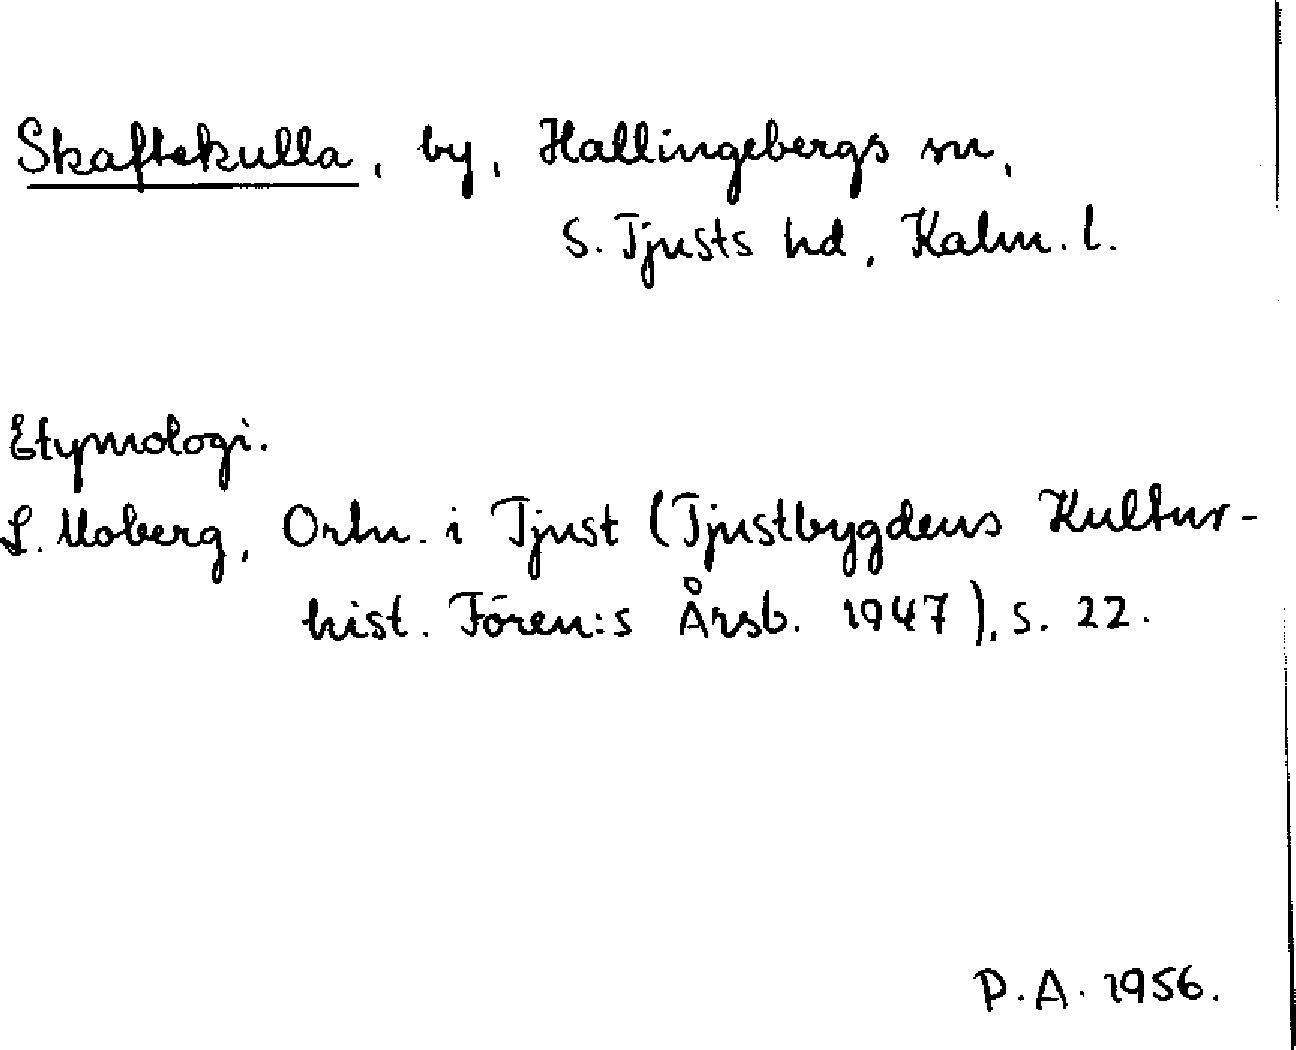 Skaftekulla, by, Hallingebergs sn,
S. Tjusts hd, Kalm. l.
Etymologi.
L. Moberg, Ortn. i Tjust (Tjustbygdens Kultur-
hist. Fören:s Årsb. 1947), s. 22.
P.A. 1956.